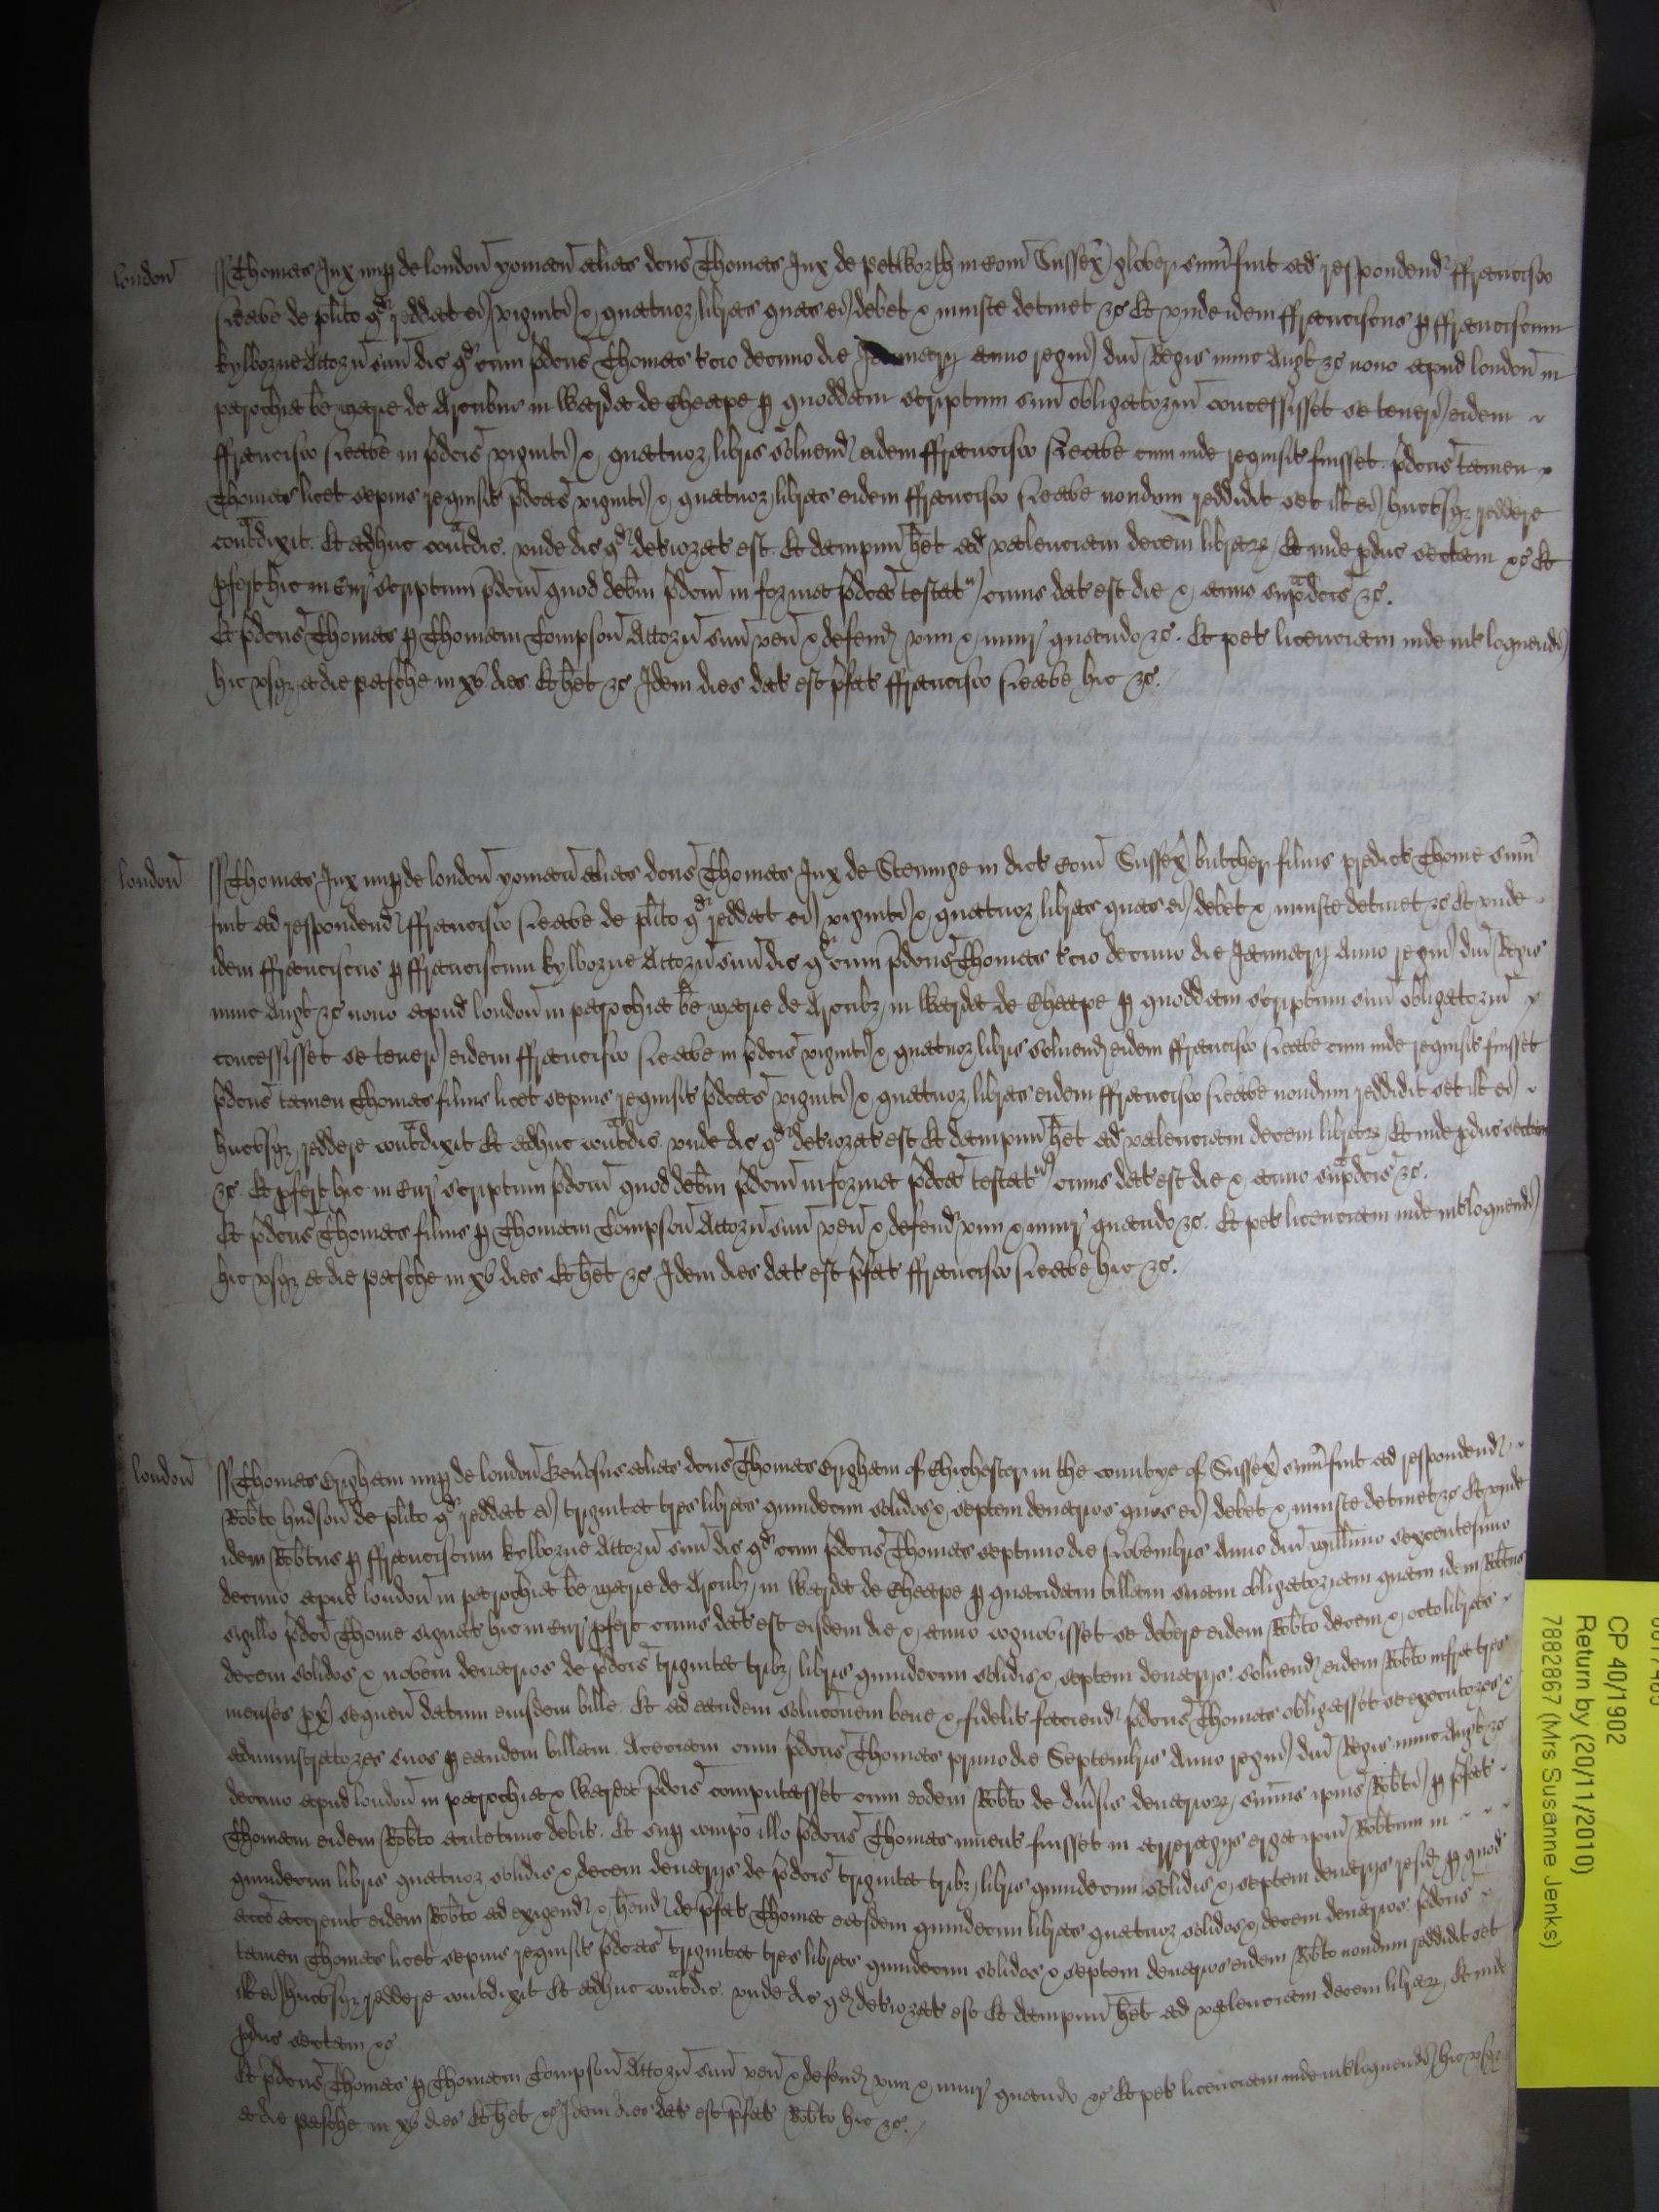 london̄ Thomas Jux nup de london̄ yoman̄ alias dc̄us Thomas Jux de petworth in Com̄ Sussex̄ glover sum̄ fuit ad respondend ffrancisco
Neave de plīto qd reddat ei viginti & quatuor libras quas ei debet & iniuste detinet &c Et unde idem ffranciscus p ffranciscum
kylborne Attorn̄ suū dic qd cum p̄dcus Thomas tcio decimo die Januarij anno regni dn̄i Regis nunc Angt &c nono apud london̄ in
parochia bē marie de Arcubus in Warda de Cheape p quoddam scriptum suū obligatoriū concessisset se teneri eidem
ffrancisco Neave in p̄dcis viginti & quatuor libris solvend eidem ffrancisco Neave cum inde requisit fuisset. p̄dcus tamen
Thomas licet sepius requisit p̄dcas viginti & quatuor libras eidem ffrancisco Neave nondum reddidit set itt ei hucusq reddere
contdixit. Et adhuc contdic. unde dic qd deteriorat est. Et dampnū het ad valenciam decem librarz Et inde pduc sectam &c Et
pfert hic in Cur scriptum p̄dcm̄ quod debm̄ p̄dcm̄ in forma p̄dca testat cuius dat est die & anno sup̄dcis &c.
Et p̄dcus Thomas p Thomam Compson̄ Attorn̄ suū ven̄ & defend vim & iniur quando &c. Et pet licenciam inde intloquendi
hic usq a die pasche in xv dies Et het &c Idem dies dat est p̄fat ffrancisco Neave hic &c.
london̄ Thomas Jux nup de london̄ yoman̄ alias dc̄us Thomas Jux de Steninge in dict Com̄ Sussex̄ butcher filius predict Thome sum̄
fuit ad respondend ffrancisco Neave de plīto qd reddat ei viginti & quatuor libras quas ei debet & iniuste detinet &c Et unde
idem ffranciscus p ffranciscum kylborne Attorn̄ suū dic qd cum p̄dcus Thomas tcio decimo die Januarij Anno regni dn̄i Regis
nunc Angt &c nono apud london̄ in parochia bē marie de Arcubz in Warda de Cheape p quoddam scriptum suū obligatoriū
concessisset se teneri eidem ffrancisco Neave in p̄dcis viginti & quatuor libris solvend eidem ffrancisco Neave cum inde requisit fuisset
p̄dcus tamen Thomas filius licet sepius requisit p̄dcas viginti & quatuor libras eidem ffrancisco Neave nondum reddidit set itt ei
hucusq reddere contdixit Et adhuc contdic. unde dic qd deteriorat est Et dampnū het ad valenciam decem librarz Et inde pduc sectam
&c. Et pfert hic in Cur scriptum p̄dcm̄ quod debm̄ p̄dcm̄ in forma p̄dca testat cuius dat est die & anno sup̄dcis &c.
Et p̄dcus Thomas filius p Thomam Compson̄ Attorn̄ suū ven̄ & defend vim & iniur quando &c. Et pet licenciam inde intloquendi
hic usq a die pasche in xv dies Et het &c Idem dies dat est p̄fat ffrancisco Neave hic &c.
london̄ Thomas nup de london̄ alias dc̄us Thomas of Chichester in the countye of Sussex̄ sum̄ fuit ad respondend
Robto hudson̄ de plīto qd reddat ei triginta tres libras quindecim solidos & septem denarios quos ei debet & iniuste detinet &c Et unde
idem Robtus p ffranciscum kylborne Attorn̄ suū dic qd cum p̄dcus Thomas septimo die Novembris Anno dn̄i millīmo sexcentesimo
decimo apud london̄ in parochia bē marie de Arcubz in Warda de Cheape p quandam billam suam obligatoriam quam idem Robtus
sigillo p̄dci Thome signat hic in Cur pfert cuius dat est eisdem die & anno cognovisset se debere eidem Robto decem & octo libras
decem solidos & novem denarios de p̄dcis triginta tribz libris quindecim solidis & septem denarijs. solvend eidem Robto infra tres
menses px̄ sequen̄ datum eiusdem bille. Et ad eandem soluconem bene & fidelit faciend p̄dcus Thomas obligasset se executores &
administratores suos p eandem billam. Acetiam cum p̄dcus Thomas primo die Septembris Anno regni dn̄i Regis nunc Angt &c
decimo apud london̄ in parochia & Warda p̄dcis computasset cum eodem Robto de divsis denariorz sum̄is ip̄ius Robti p p̄fat
Thomam eidem Robto antetunc debit. Et sup compo illo p̄dcus Thomas invent fuisset in arreragijs erga ip̄m Robtum in
quindecim libris quatuor solidis & decem denarijs de p̄dcis triginta tribz libris quindecim solidis & septem denarijs resid p quod
acco accrevit eidem Robto ad exigend & hend de p̄fat Thoma easdem quindecim libras quatuor solidos & decem denarios. p̄dcus
tamen Thomas licet sepius requisit p̄dcas triginta tres libras quindecim solidos & septem denarios eidem Robto nondum reddidit set
itt ei hucusq reddere contdixit Et adhuc contdic. unde dic qd deteriorat est Et dampnū het ad valenciam decem librarz Et inde
pduc sectam &c
Et p̄dcus Thomas p Thomam Compson̄ Attorn̄ suū ven̄ & defend vim & iniur quando &c Et pet licenciam inde intloquendi hic usq
a die pasche in xv dies Et het &c Idem dies dat est p̄fat Robto hic &c.
CP 40/1902
Return by (20/11/2010)
7882867 (Mrs Susanne Jenks)